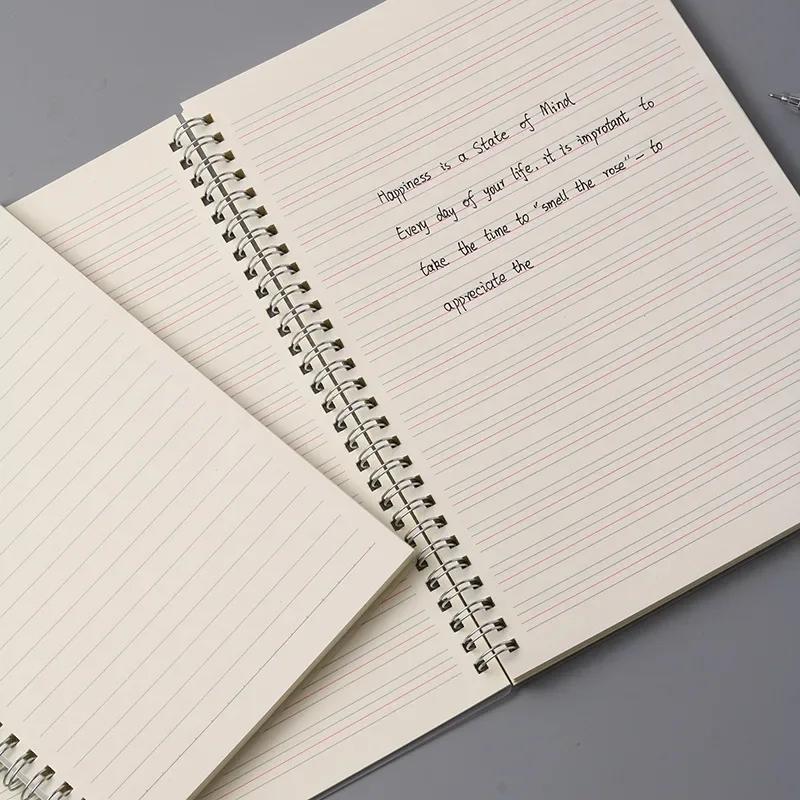 Happiness is a State of Mind
Every day of your life, it is improtant to
take the time to "smell the rose" – to
appreciate the